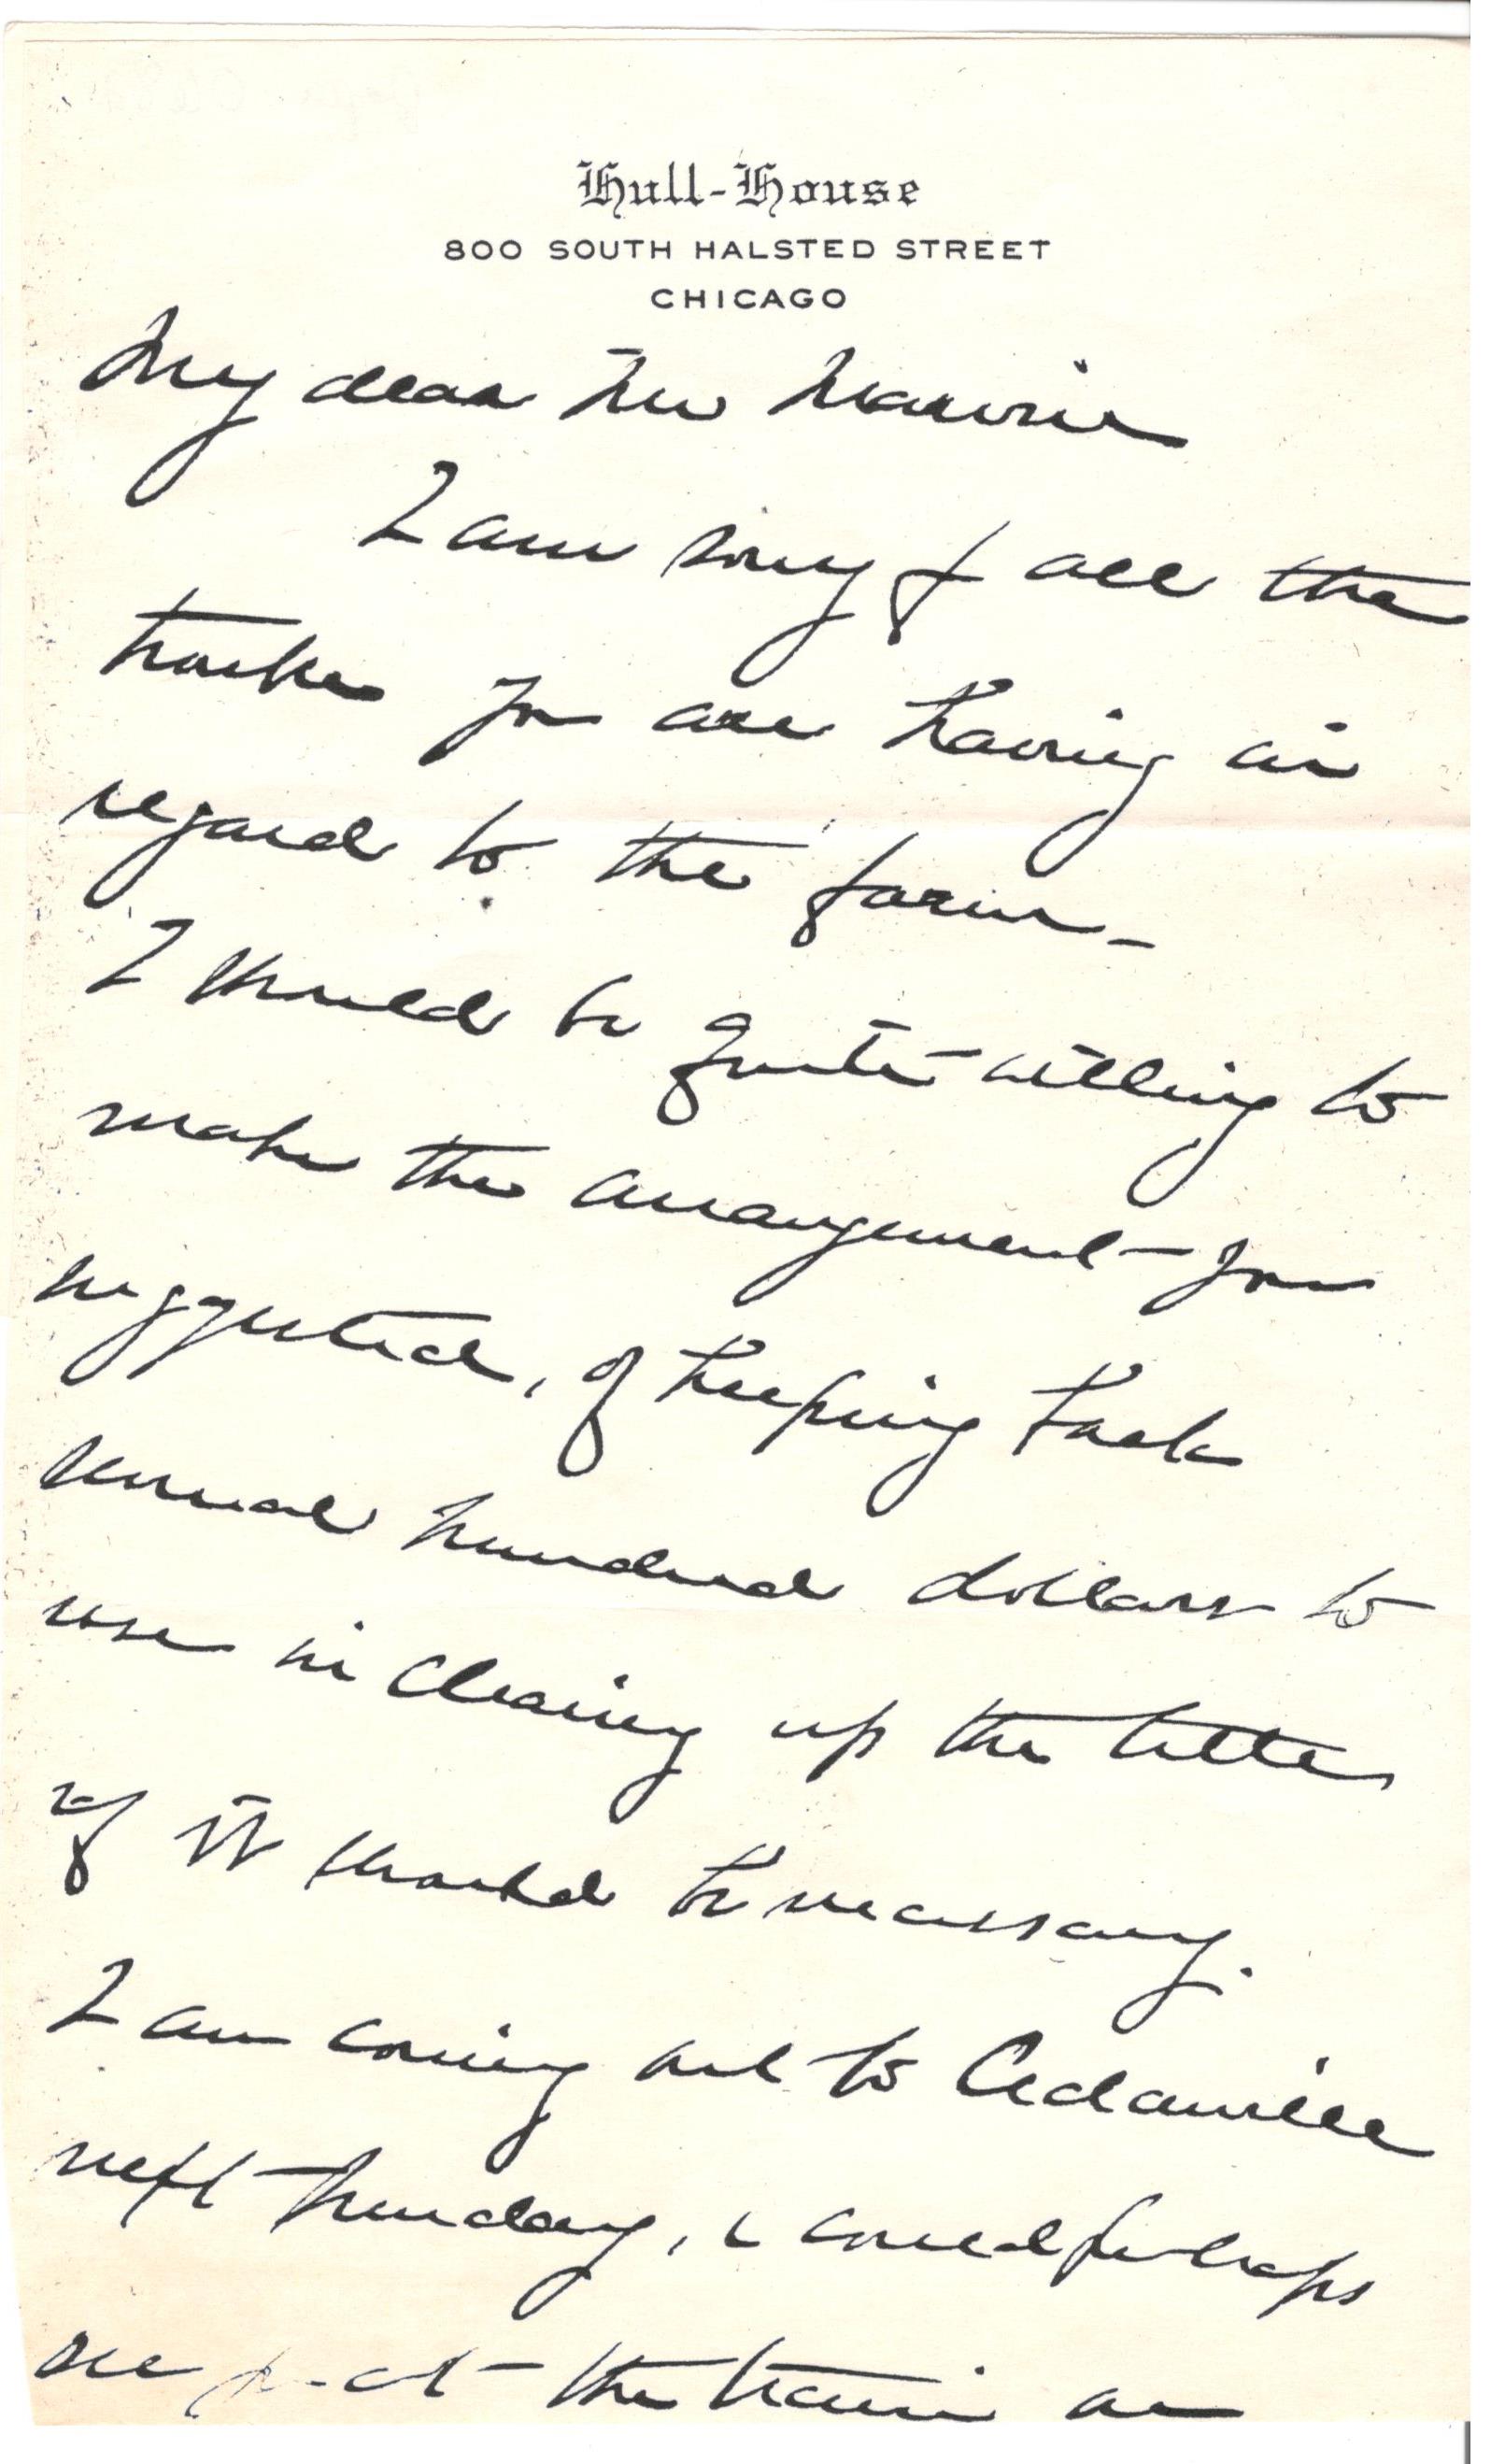 Hull-House
800 SOUTH HALSTED STREET
CHICAGO
My dear Mr
I am sorry for all the
trouble you are having in
regard to the farm –
I should be quite willing to
make the arrangement you
suggested, of keeping back
several hundred dollars to
use in clearing up the title,
if it should be necessary.
I am coming out to Cedarville
next Sunday, & could perhaps
see you at the train or